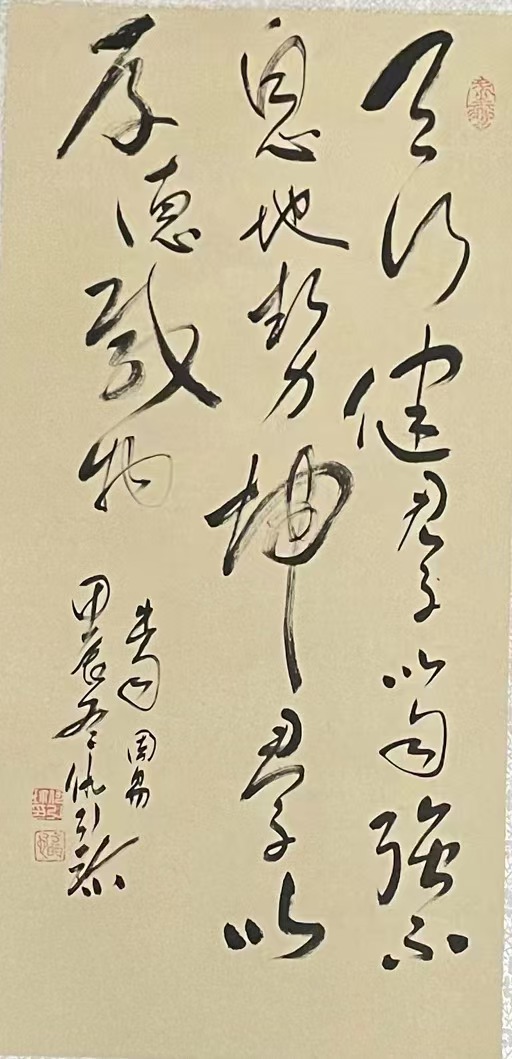 天行健君子以自强不
息地势坤君子以
厚德载物
周易
甲辰冬